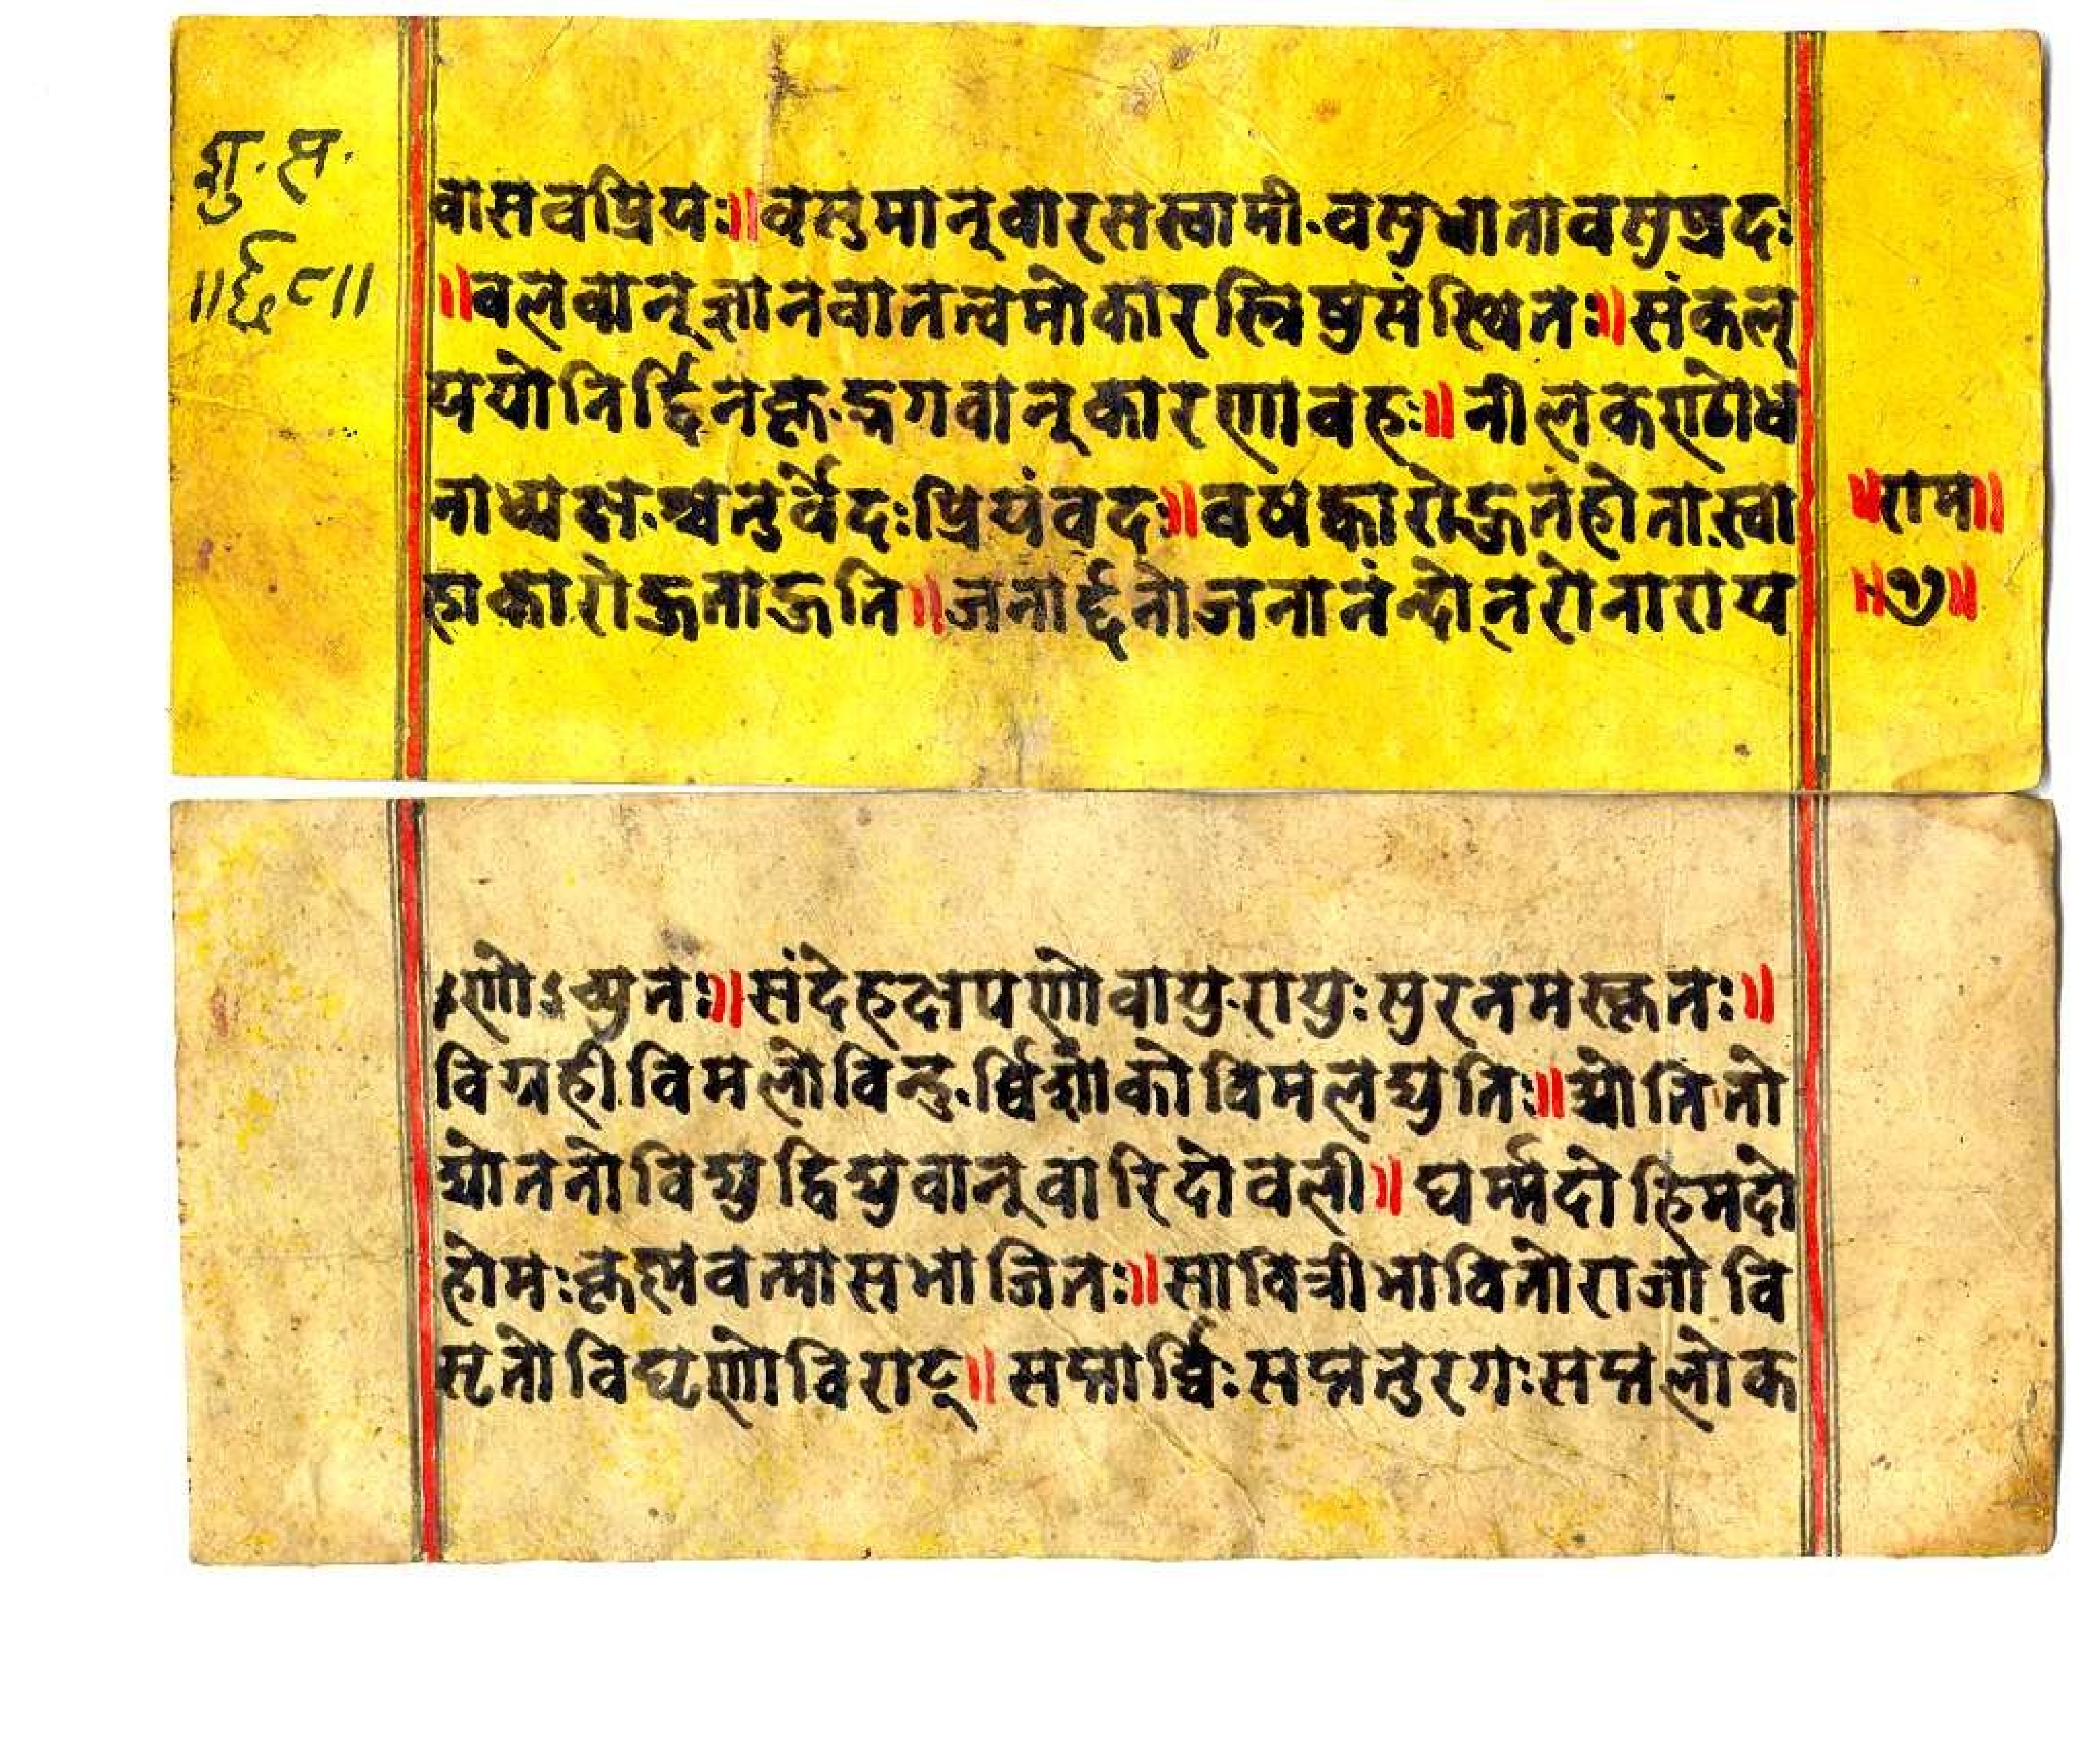 शु.स.
वासवप्रियः॥वसुमान्वारसस्वामी.वसुधातावसुप्रदः
॥वलवान्ज्ञानवातत्त्वमोकारस्त्रिषुसंस्थितः॥संकल्
पयोनिर्द्दिनकृ.द्भगवान्कारणावहः॥नीलकण्ठोध
नाध्यक्ष.श्चतुर्वेदःप्रियंवदः॥वषट्कारोहुतंहोतास्वा
हाकारोहुताहुति॥जनार्द्दनोजनानंन्दोनरोनाराय
॥राम॥
॥७॥
णोऽच्युतः॥संदेहक्षपणोवायु.रायुःसुरनमस्कृतः॥
विग्रहीविमलोविन्दु.र्व्विशोकोविमलद्युतिः॥द्योतितो
द्योतनोविद्युद्विद्युवान्वारिदोवली॥घर्म्मदोहिमदो
होमःकृष्णवर्त्मासभाजितः॥सावित्रीभावितोराजावि
सृतोविघृणोविराट्॥सप्तार्च्चिःसप्ततुरगःसप्तलोक